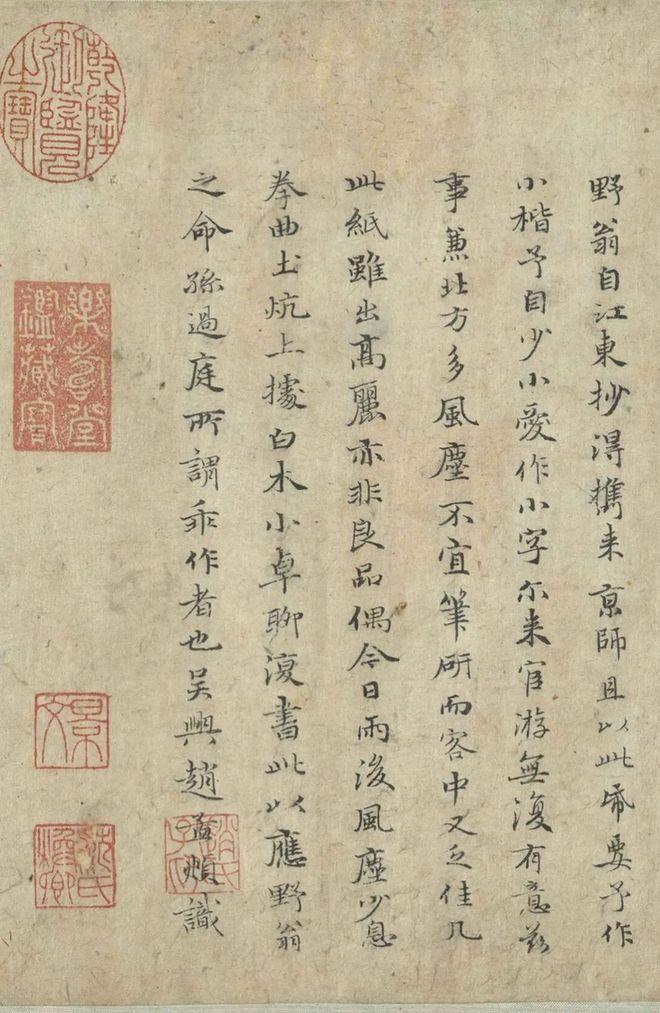 野翁自江東抄得攜来京師且以此帋要予作
小楷予自少小愛作小字尓来官游無復有意茲
事兼北方多風塵不宜筆研而客中又乏佳几
此紙雖出高麗亦非良品偶今日雨後風塵少息
拳曲土炕上據白木小卓聊復書此以應野翁
之命孫過庭所謂乖作者也吳興趙孟頫識
趙氏子昂
乾隆御覽之寶
樂壽堂鑑藏寶
景文
沈氏